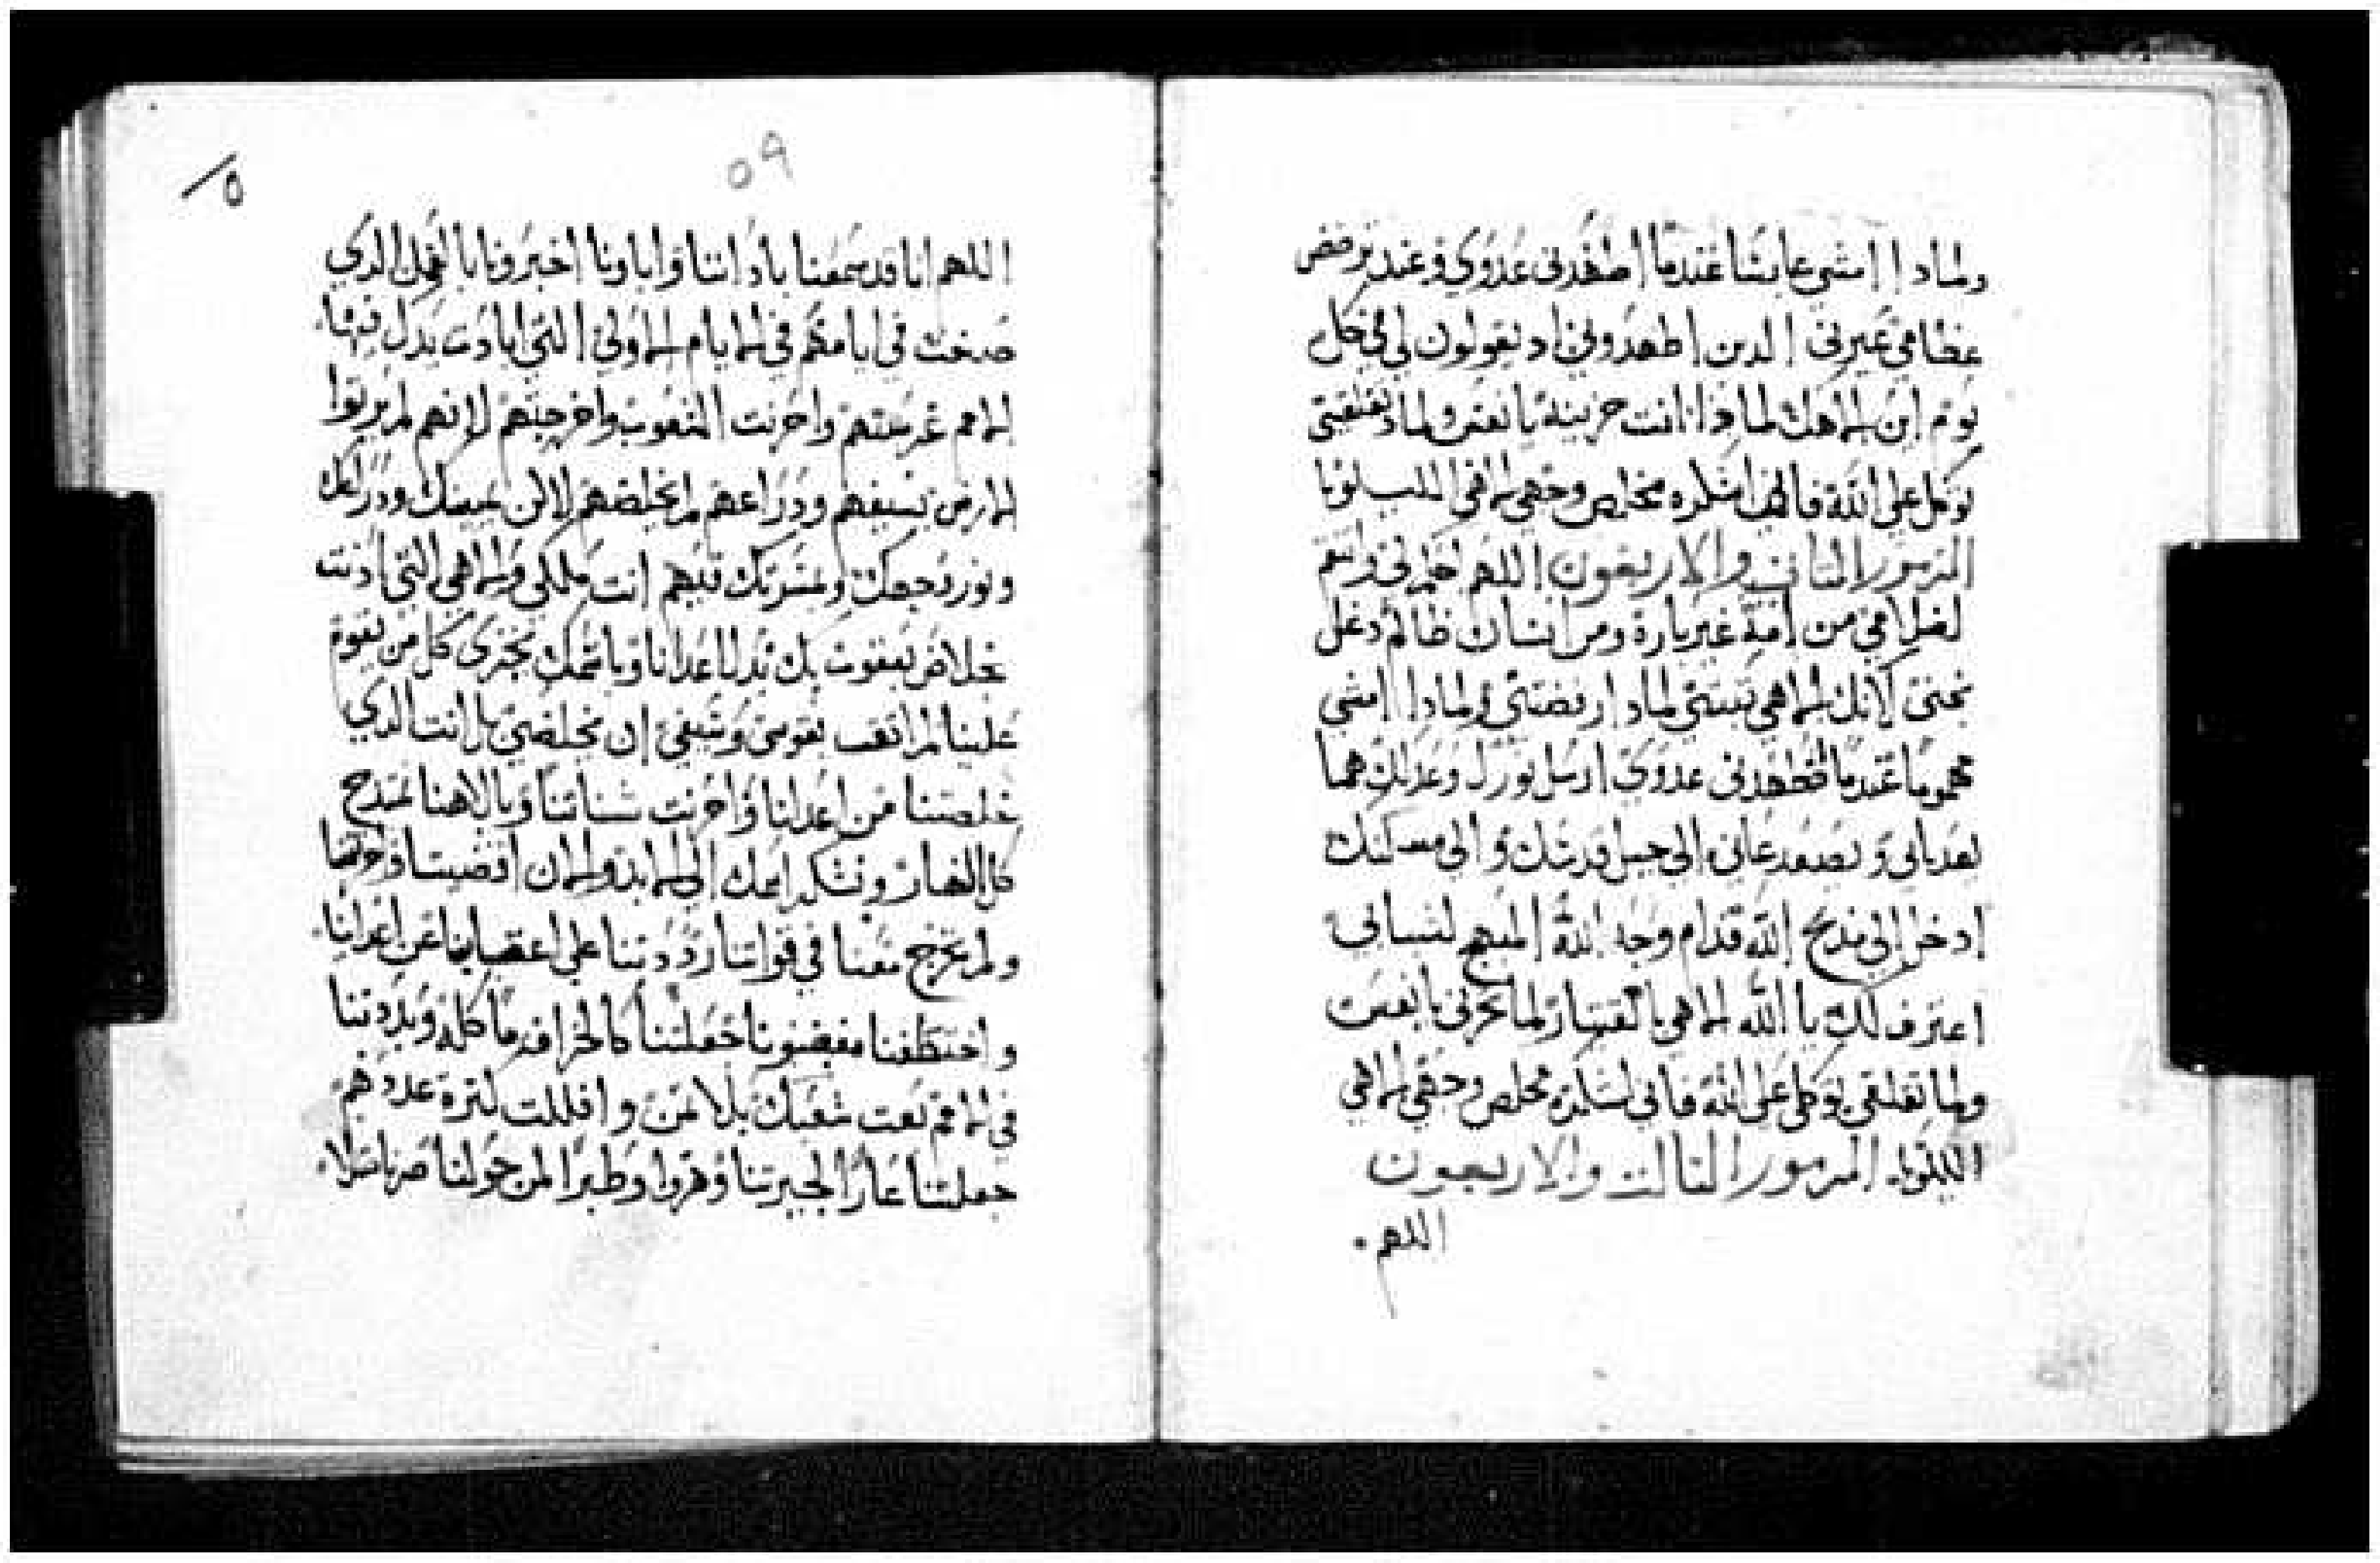 ولماذا امشي عابسًا عندما اضطهدني عدوي وعند ترضض
عظامي عيرني الذين اضطهدوني اذ يقولون لي في كل
يوم اين الاهك لماذا انت حزينة يا نفس ولماذا تقلقيني
توكلي على الله فاني اشكره مخلص وجهي الاهي الليلويا
المزمور الثاني والاربعون اللهم احكم لي وانتقم
لظلامتي من امة غير بارة ومن انسان ظالم دغل
نجني لانك الاهي تثبتني لماذا رفضتني ولماذا امشي
مهمومًا عندما يضطهدني عدوي ارسل نورك وعدلك هما
يهدياني و يصعداني الى جبل قدسك والى مسكنك
ادخل الى مذبح الله قدام وجه الله المبهج لشبابي
اعترف لك يا الله الاهي بالقيثار لما تحزني يا نفس
ولما تقلقي توكلي على الله فاني اشكره مخلص وجهي الاهي
الليلويا المزمور الثالث والاربعون
اللهم
٥٩
اللهم انا قد سمعنا باداننا واباونا اخبرونا بالفعل الدي
صنعت في ايامهم في الايام الاولى التي ابادت يدك فيها
الامم غرستهم واحزنت الشعوب واخرجتهم لانهم لم يرتوا
الارض بسيفهم ودراعهم لم يخلصهم لاكن يمينك ودراعك
ونور وجهك ومسرتك فيهم انت ملكي والاهي التي اذنت
بخلاص يعقوب بك نذل اعدانا وباسمك نخزي كل من يقوم
علينا لم اثق بقوسي وسيفي ان يخلصني بل انت الدي
خلصتنا من اعدانا واحزنت شناتنا وبالاهنا نمتدح
كل النهار ونشكر اسمك الى الابد والان اقصيتنا واخزيتنا
ولم تخرج معنا في قواتنا رددتنا على اعقابنا عن اعدانا
واختطفنا مبغضونا جعلتنا كالخراف ماكلة وبددتنا
في الامم بعت شعبك بلا ثمن واقللت كثرة عددهم
جعلتنا عارًا لجيرتنا وهزوا وطنزًا لمن حولنا صرنا مثلا